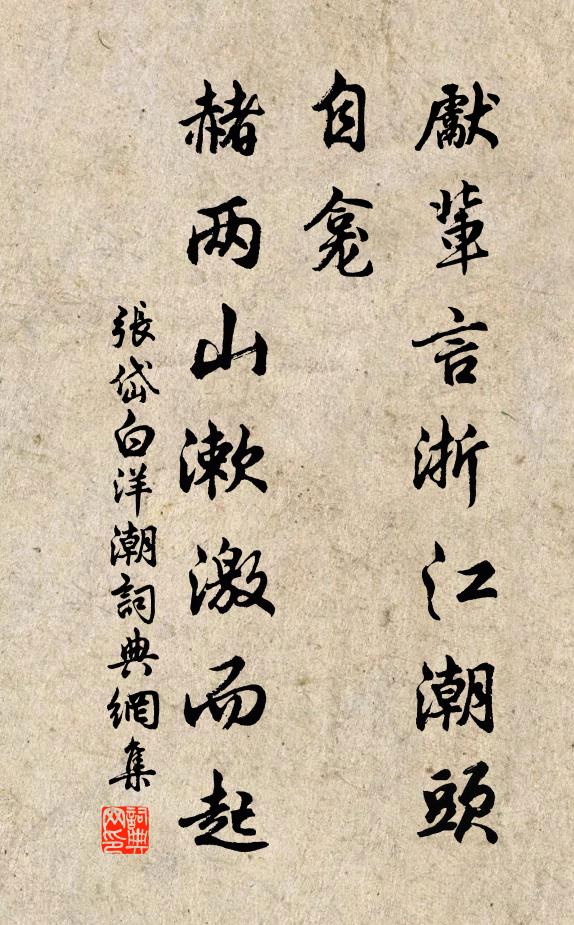 獻輩言浙江潮頭
自龕
赭两山漱激而起
張岱白洋潮詞典網集
詞典
网印